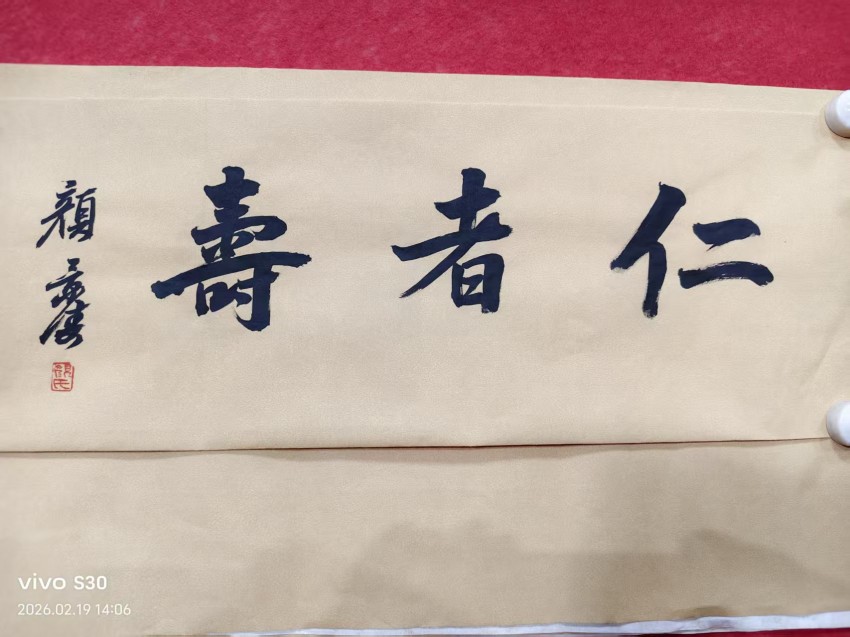 仁者壽
顏
顏氏
vivo S30
2026.02.19 14:06